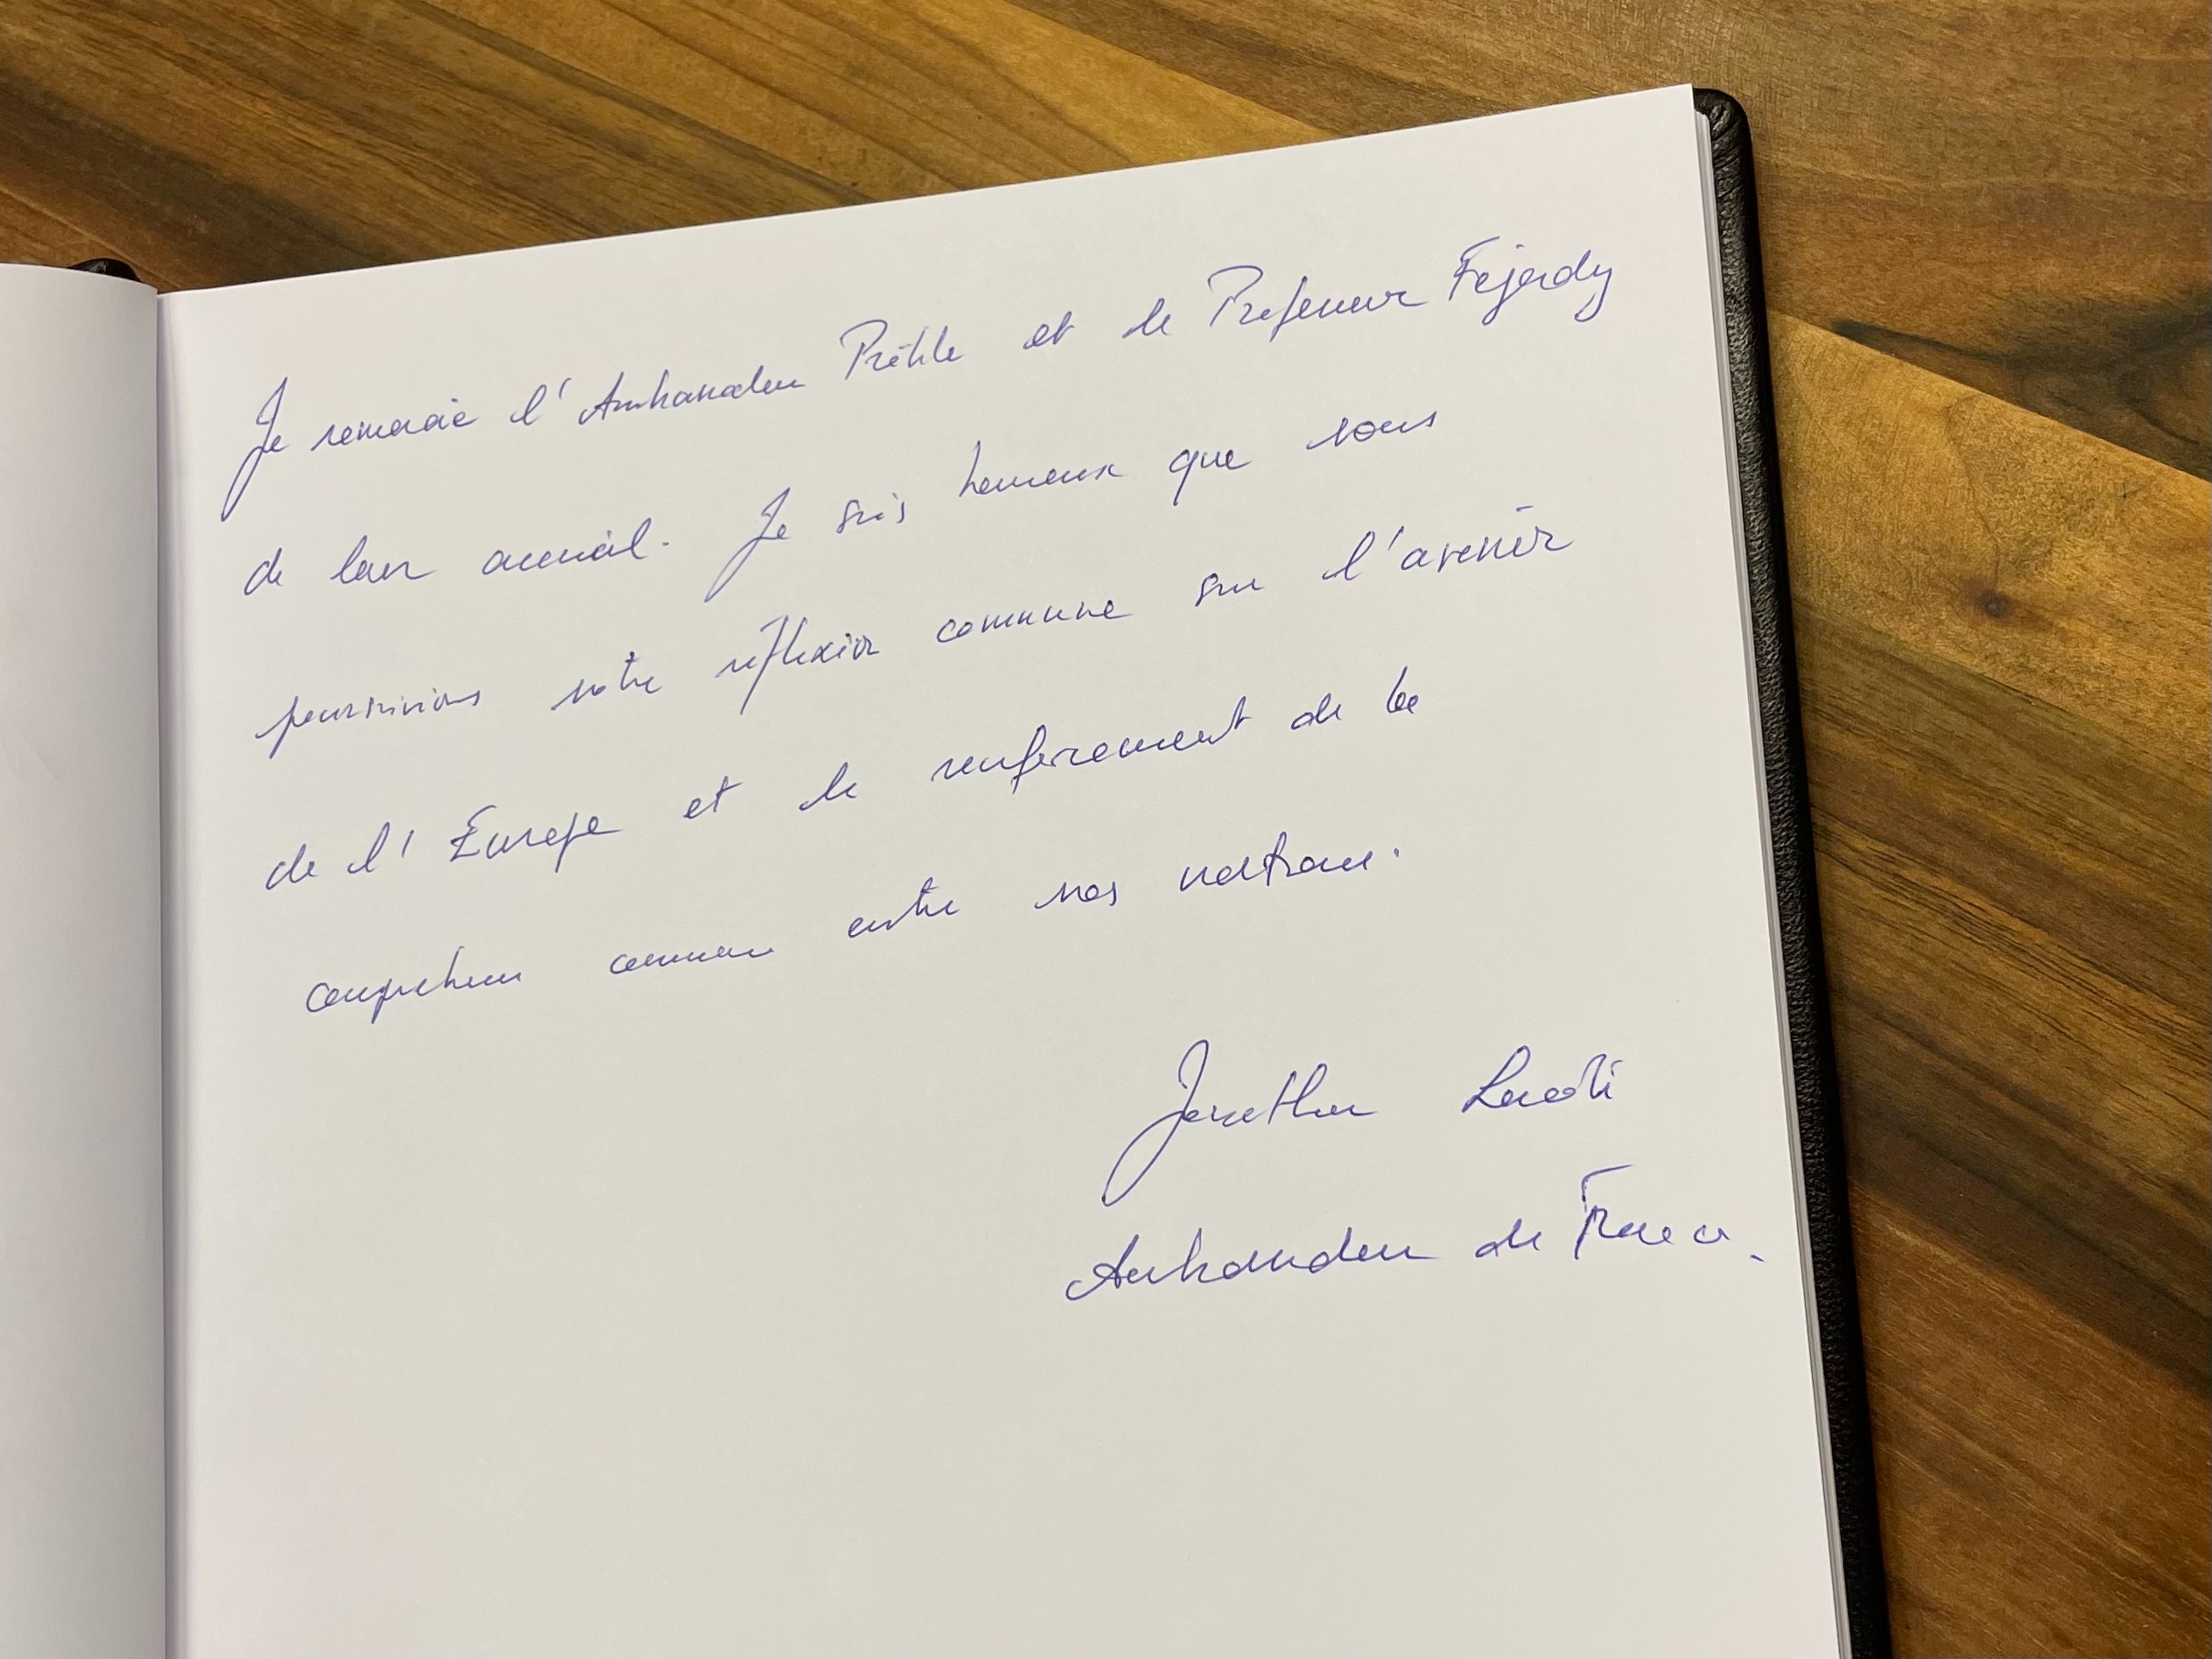 Je remercie l'Ambassadeur Prőhle et le Professeur Fejérdy
de leur accueil. Je suis heureux que nous
poursuivions notre réflexion commune sur l'avenir
de l'Europe et le renforcement de la
compréhension commune entre nos nations.
Jonathan Lacôte
Ambassadeur de France.